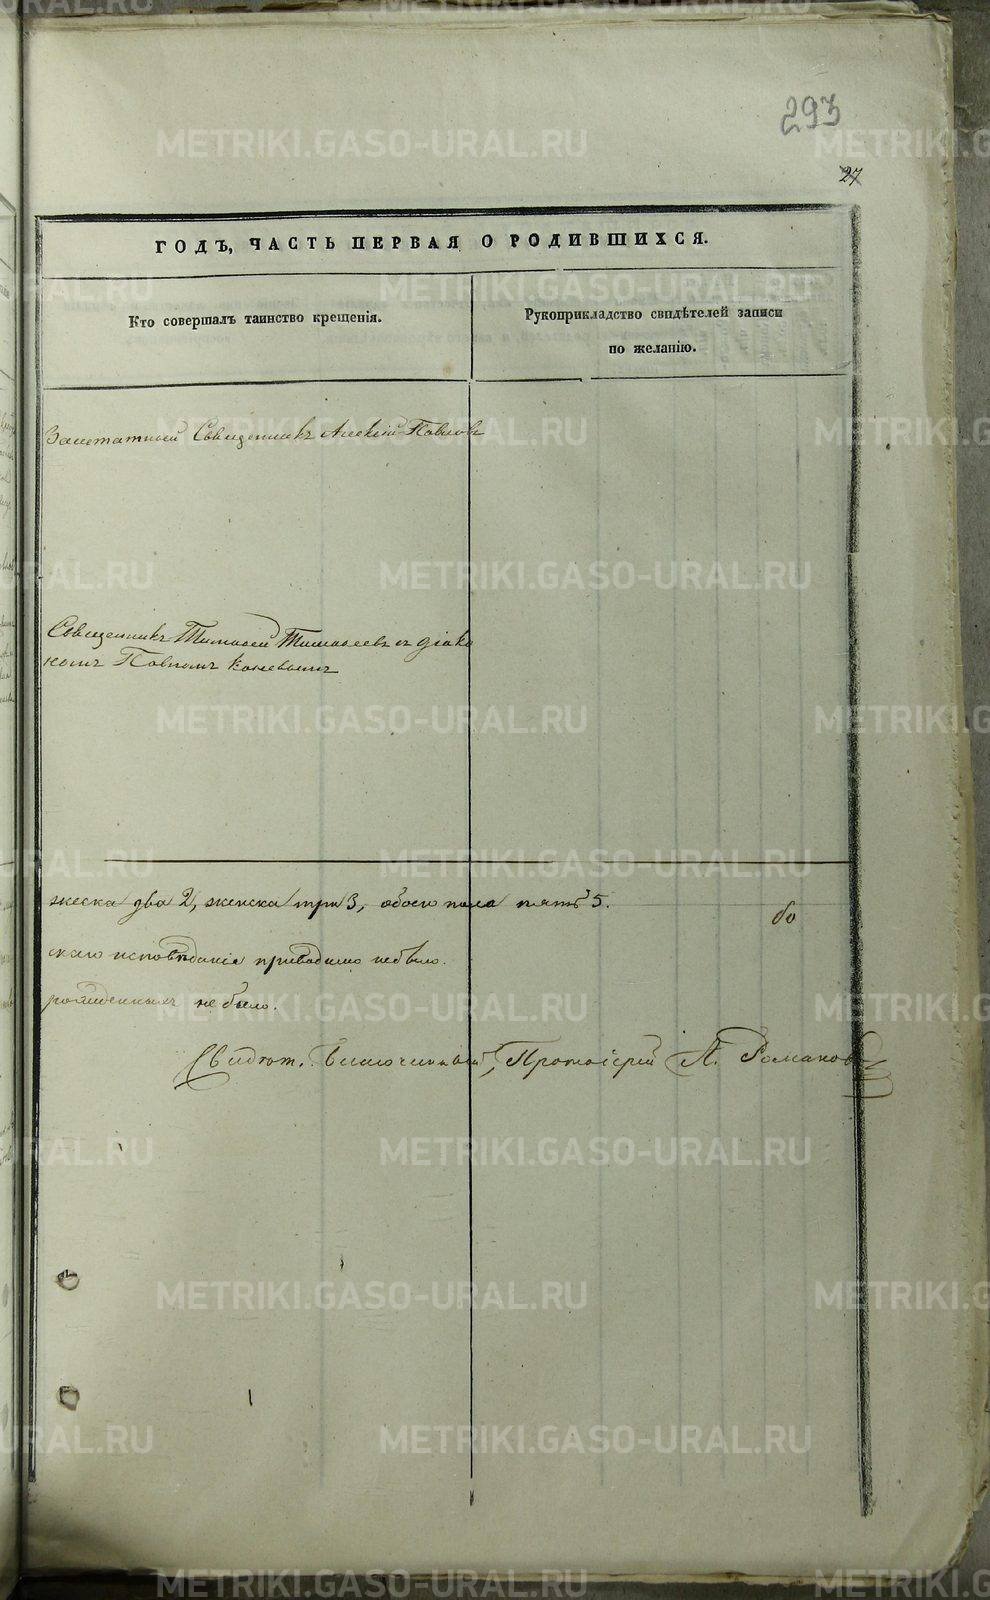 293
27
ГОДЪ, ЧАСТЬ ПЕРВАЯ О РОДИВШИХСЯ.
Кто совершалъ таинство крещенія.
Рукоприкладство свидѣтелей записи
по желанію.
Заштатный Священникъ Алексій Павловъ
Священникъ Тимофей Тимофеевъ съ діако
номъ Павломъ Коневымъ
жеска два 2, женска три 3, обоего пола пять 5.
бо
скаго исповѣданія приводимо не было.
рожденныхъ не было.
Свидѣт. Благочинный, Протоіерей А. Романовъ
METRIKI.GASO-URAL.RU